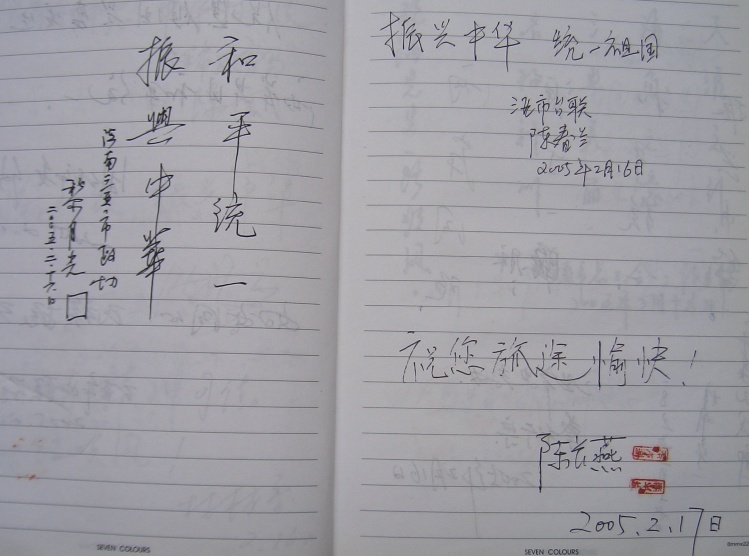 和平统一
振興中華
海南三亚市政协
二〇〇五.二.十六日
SEVEN COLOURS
振兴中华 统一祖国
市台联
陈春兰
2005年2月16日
祝您旅途愉快！
陈长燕
2005.2.17日
SEVEN COLOURS